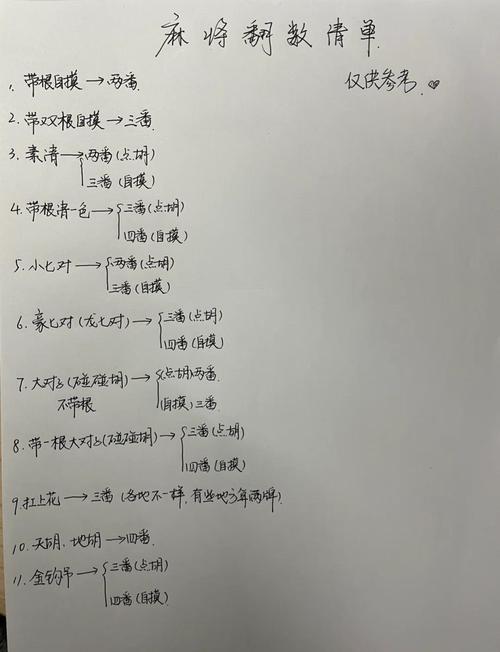 麻将翻数清单
仅供参考.
1. 带根自摸→两番
2. 带双根自摸→三番
3. 素清→两番(点胡)
三番(自摸)
4. 带根清一色→三番(点胡)
四番(自摸)
5. 小七对→两番(点胡)
三番(自摸)
6. 豪七对(龙七对)→三番(点胡)
四番(自摸)
7. 大对子(碰碰胡)→(点胡)两番
不带根 (自摸)三番
8. 带一根大对子(碰碰胡)→三番(点胡)
四番(自摸)
9. 扛上花→三番(各地不一样,有些地方算两番)
10. 天胡、地胡→四番
11. 金钩吊→三番(点胡)
四番(自摸)